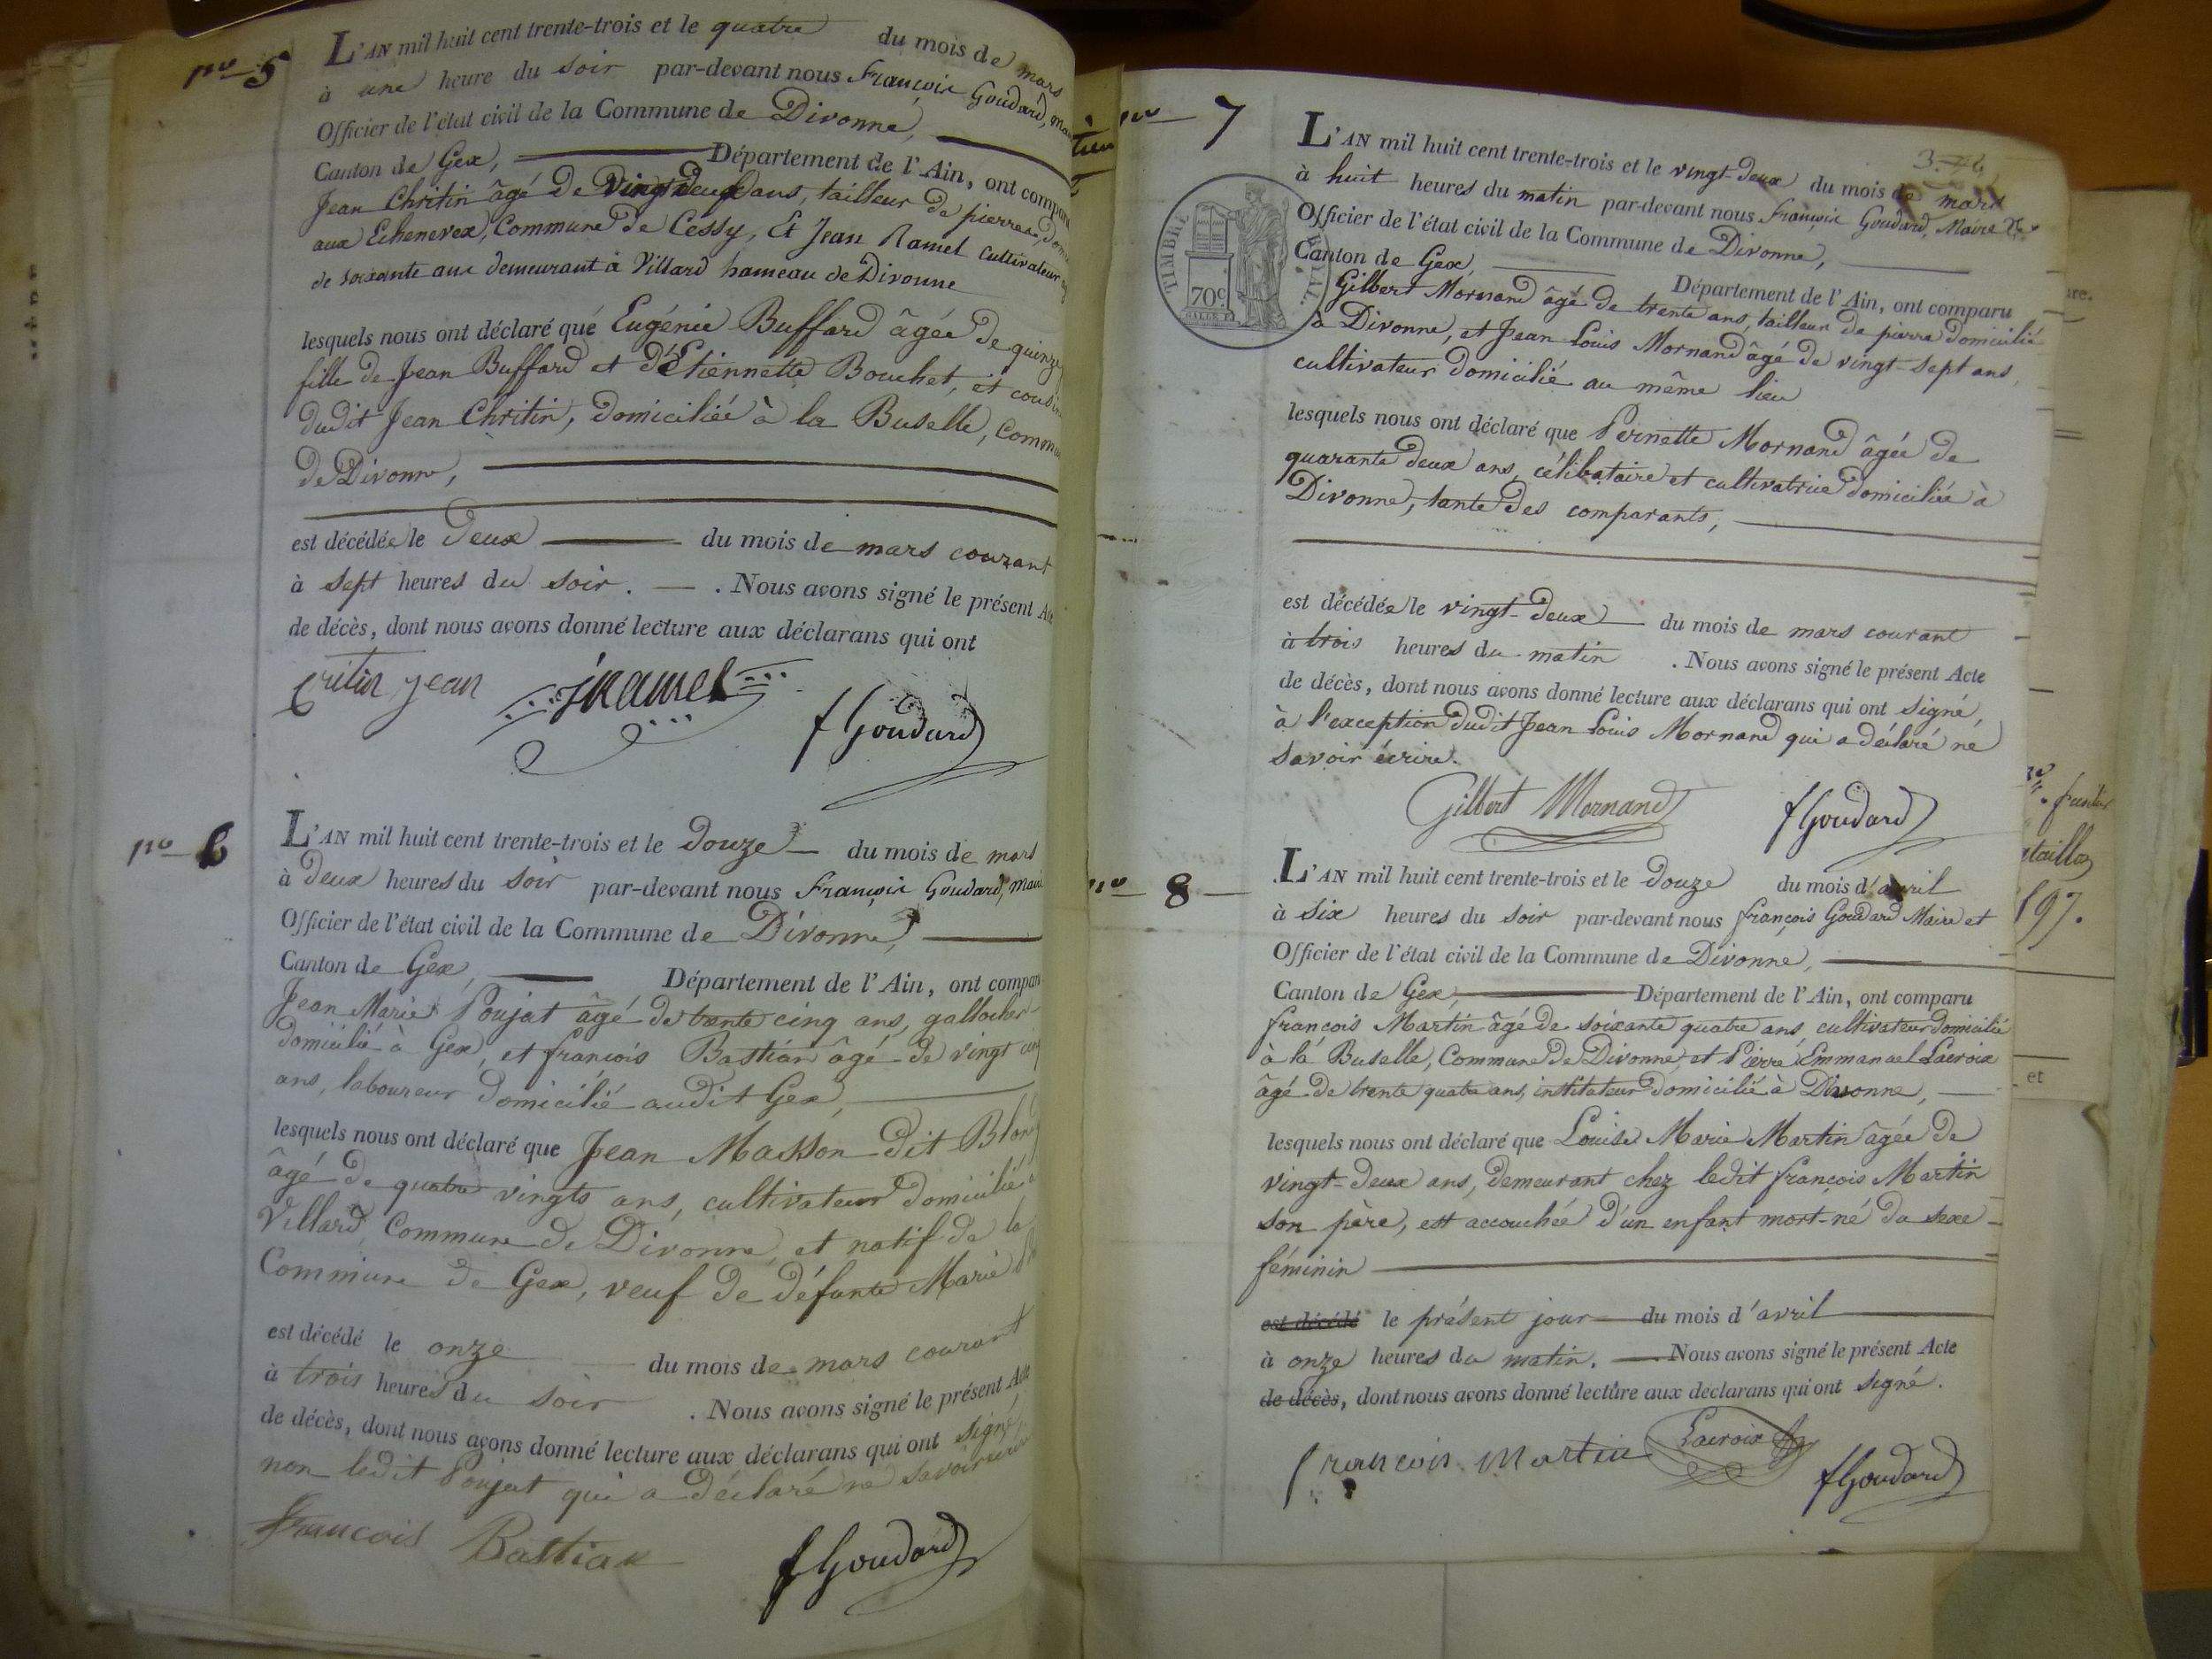 nº 5
L'AN mil huit cent trente-trois et le quatre du mois de mars
à une heure du soir par-devant nous François Goudard,
Officier de l'état civil de la Commune de Divonne,
Canton de Gex, Département de l'Ain, ont
Jean Chritin âgé de vingt deux ans, tailleur de pierres,
aux Echenevex, Commune de Cessy, Et Jean Ramel Cultivateur
de soixante ans demeurant à Villard hameau de Divonne
lesquels nous ont déclaré que Eugénie Buffard âgée de quinze
fille de Jean Buffard et d'Etiennette Bouchet, et
dudit Jean Chritin, domiciliée à la Buselle,
de Divonne,
est décédée le deux du mois de mars courant
à sept heures du soir. Nous avons signé le présent
de décès, dont nous avons donné lecture aux déclarans qui ont
Critin jean jRamel f Goudard
nº 6
L'AN mil huit cent trente-trois et le douze du mois de mars
à deux heures du soir par-devant nous François Goudard,
Officier de l'état civil de la Commune de Divonne,
Canton de Gex, Département de l'Ain, ont
Jean Marie Poujat âgé de trente cinq ans,
domicilié à Gex, et françois Bastian âgé de vingt
ans, laboureur domicilié audit Gex,
lesquels nous ont déclaré que Jean Masson dit
âgé de quatre vingts ans, cultivateur domicilié
Villard, Commune de Divonne, et natif de la
Commune de Gex, veuf de défunte Marie
est décédé le onze du mois de mars courant
à trois heures du soir . Nous avons signé le présent
de décès, dont nous avons donné lecture aux déclarans qui ont signé
non ledit Poujat qui a déclaré ne savoir
françois Bastian f Goudard
nº 7
3
L'AN mil huit cent trente-trois et le vingt-deux du mois de mars
à huit heures du matin par-devant nous François Goudard, Maire &
Officier de l'état civil de la Commune de Divonne,
Canton de Gex, Département de l'Ain, ont comparu
Gilbert Mornand âgé de trente ans, tailleur de pierre domicilié
à Divonne, et Jean Louis Mornand âgé de vingt-sept ans,
cultivateur domicilié au même lieu
TIMBRE
70c
lesquels nous ont déclaré que Pernette Mornand âgée de
quarante deux ans, célibataire et cultivatrice domiciliée à
Divonne, tante des comparants,
est décédée le vingt-deux du mois de mars courant
à trois heures du matin . Nous avons signé le présent Acte
de décès, dont nous avons donné lecture aux déclarans qui ont signé,
à l'exception dudit Jean Louis Mornand qui a déclaré ne
savoir écrire.
Gilbert Mornand f Goudard
nº 8
L'AN mil huit cent trente-trois et le douze du mois d'avril
à six heures du soir par-devant nous françois Goudard Maire et
Officier de l'état civil de la Commune de Divonne,
Canton de Gex, Département de l'Ain, ont comparu
françois Martin âgé de soixante quatre ans, cultivateur domicilié
à la Buselle, Commune de Divonne, et Pierre Emmanuel Lacroix
âgé de trente quatre ans, instituteur domicilié à Divonne,
lesquels nous ont déclaré que Louise Marie Martin âgée de
vingt-deux ans, demeurant chez ledit françois Martin
son père, est accouchée d'un enfant mort-né du sexe
féminin
est décédé le présent jour du mois d'avril
à onze heures du matin. Nous avons signé le présent Acte
de décès, dont nous avons donné lecture aux déclarans qui ont signé.
françois Martin Lacroix f Goudard
197.
et